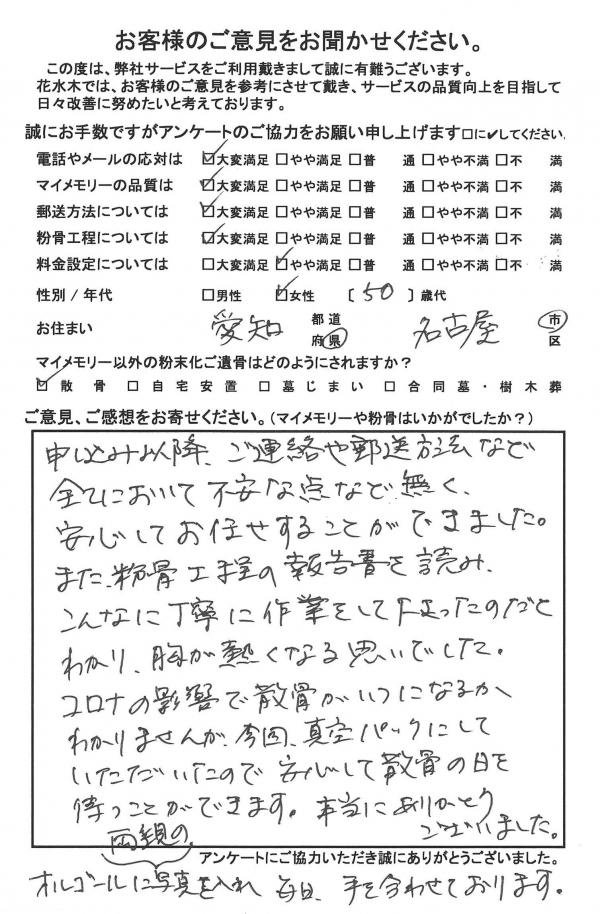 お客様のご意見をお聞かせください。
この度は、弊社サービスをご利用戴きまして誠に有難うございます。
花水木では、お客様のご意見を参考にさせて戴き、サービスの品質向上を目指して
日々改善に努めたいと考えております。
誠にお手数ですがアンケートのご協力をお願い申し上げます□に✓してください。
電話やメールの応対は ☑大変満足 □やや満足 □普 通 □やや不満 □不 満
マイメモリーの品質は ☑大変満足 □やや満足 □普 通 □やや不満 □不 満
郵送方法については ☑大変満足 □やや満足 □普 通 □やや不満 □不 満
粉骨工程については ☑大変満足 □やや満足 □普 通 □やや不満 □不 満
料金設定については □大変満足 ☑やや満足 □普 通 □やや不満 □不 満
性別 / 年代 □男性 ☑女性 [ 50 ] 歳代
お住まい 愛知 都道府県 名古屋 市区
マイメモリー以外の粉末化ご遺骨はどのようにされますか?
☑散骨 □自宅安置 □墓じまい □合同墓・樹木葬
ご意見、ご感想をお寄せください。(マイメモリーや粉骨はいかがでしたか?)
申し込み以降、ご連絡や郵送方法など
全てにおいて不安な点など無く、
安心してお任せすることができました。
また、粉骨工程の報告書を読み、
こんなに丁寧に作業をして下さったのだと
わかり、胸が熱くなる思いでした。
コロナの影響で散骨がいつになるか
わかりませんが、今回、真空パックにして
いただいたので安心して散骨の日を
待つことができます。本当にありがとう
ございました。
アンケートにご協力いただき誠にありがとうございました。
両親の
オルゴールに写真を入れ 毎日、手を合わせております。